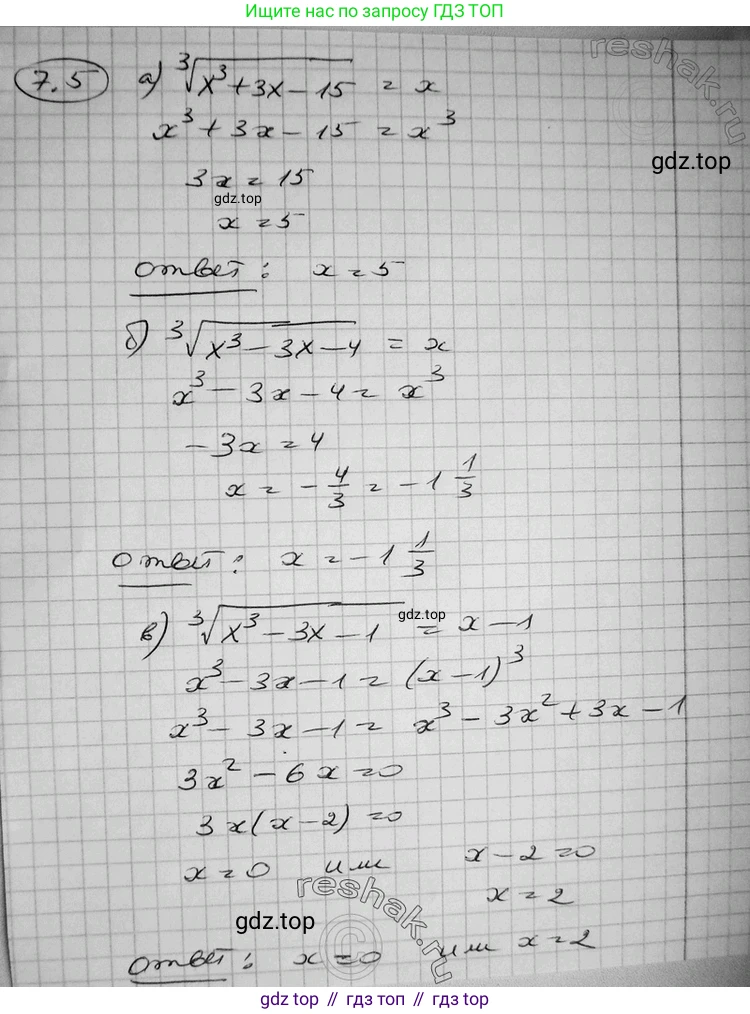 Ищите нас по запросу ГДЗ ТОП
reshak.ru
7.5 а) ∛(x³+3x−15) = x
x³+3x−15 = x³
gdz.top
3x = 15
gdz.top
x = 5
Ответ: x = 5
б) ∛(x³−3x−4) = x
x³−3x−4 = x³
−3x = 4
x = −4/3 = −1 1/3
Ответ: x = −1 1/3
в) ∛(x³−3x−1) = x−1
gdz.top
x³−3x−1 = (x−1)³
x³−3x−1 = x³−3x²+3x−1
3x²−6x=0
3x(x−2)=0
x=0 или x−2=0
x=2
reshak.ru
gdz.top
Ответ: x=0 или x=2
gdz top // гдз топ // gdz top